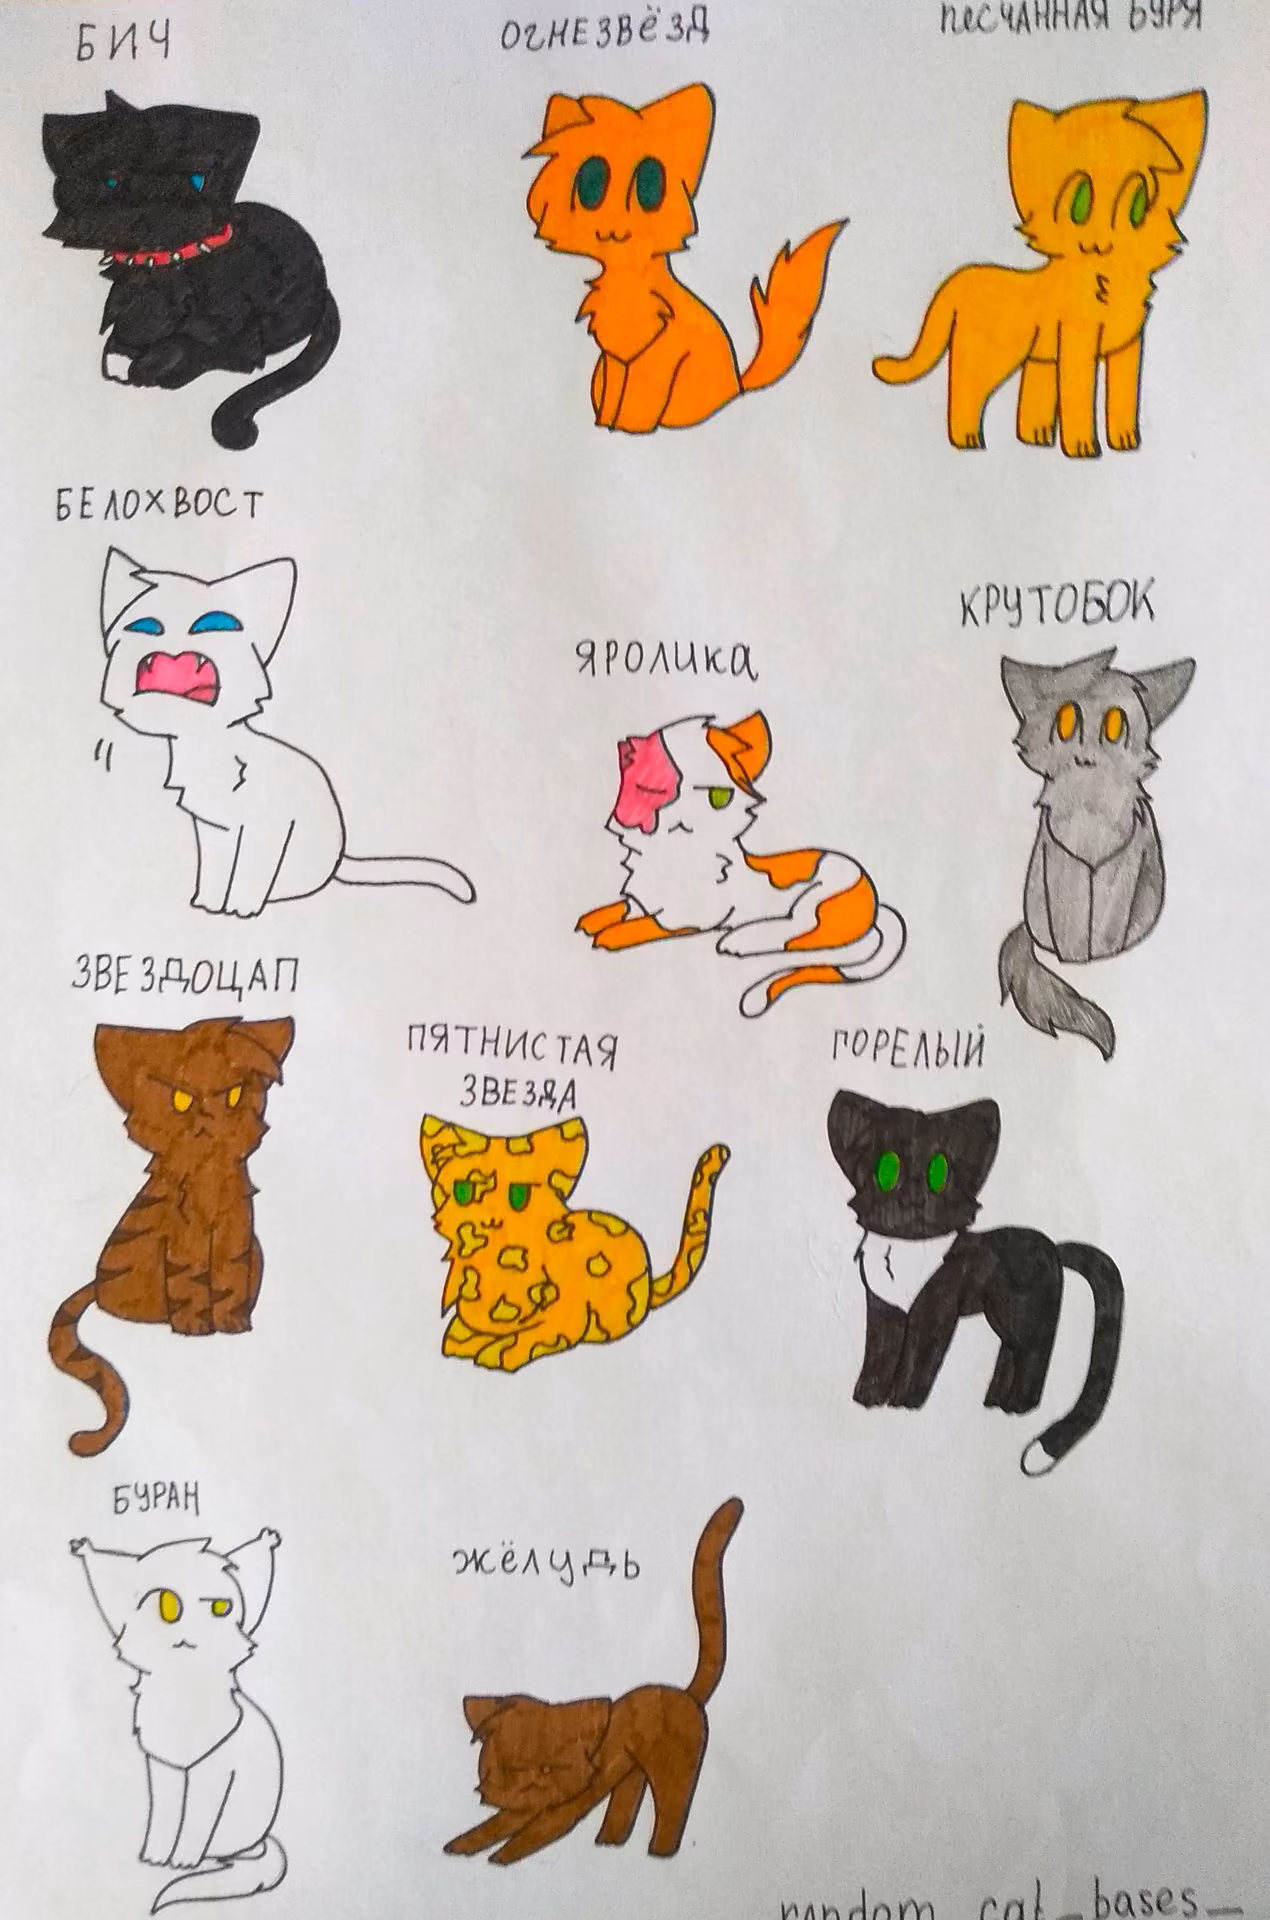 БИЧ
ОГНЕЗВЁЗД
ПЕСЧАННАЯ БУРЯ
БЕЛОХВОСТ
КРУТОБОК
ЯРОЛИКА
ЗВЕЗДОЦАП
ПЯТНИСТАЯ
ЗВЕЗДА
ГОРЕЛЫЙ
БУРАН
ЖЁЛУДЬ
random_cat_bases_